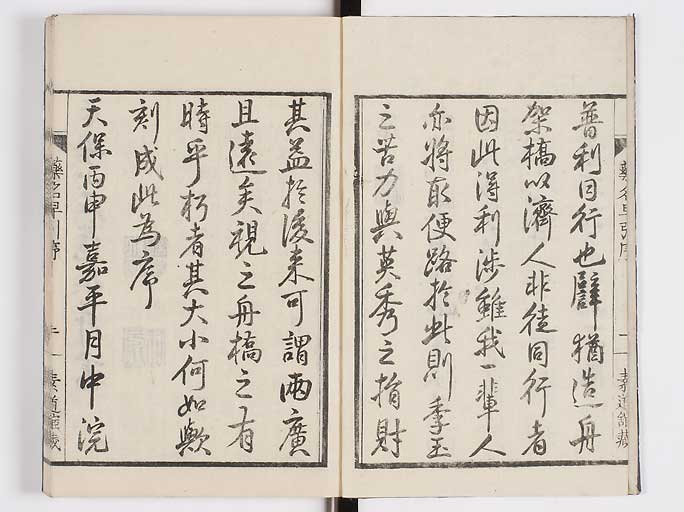 普利同行也譬猶造舟
架橋以濟人非徒同行者
因此得利涉雖我一輩人
亦將取便路於此則季玉
之苦力與英秀之捐財
其益於後来可謂兩廣
且遠矣視之舟橋之有
時乎朽者其大小何如歟
刻成此為序
天保丙申嘉平月中浣
藥名早引序
二
藥名早引序